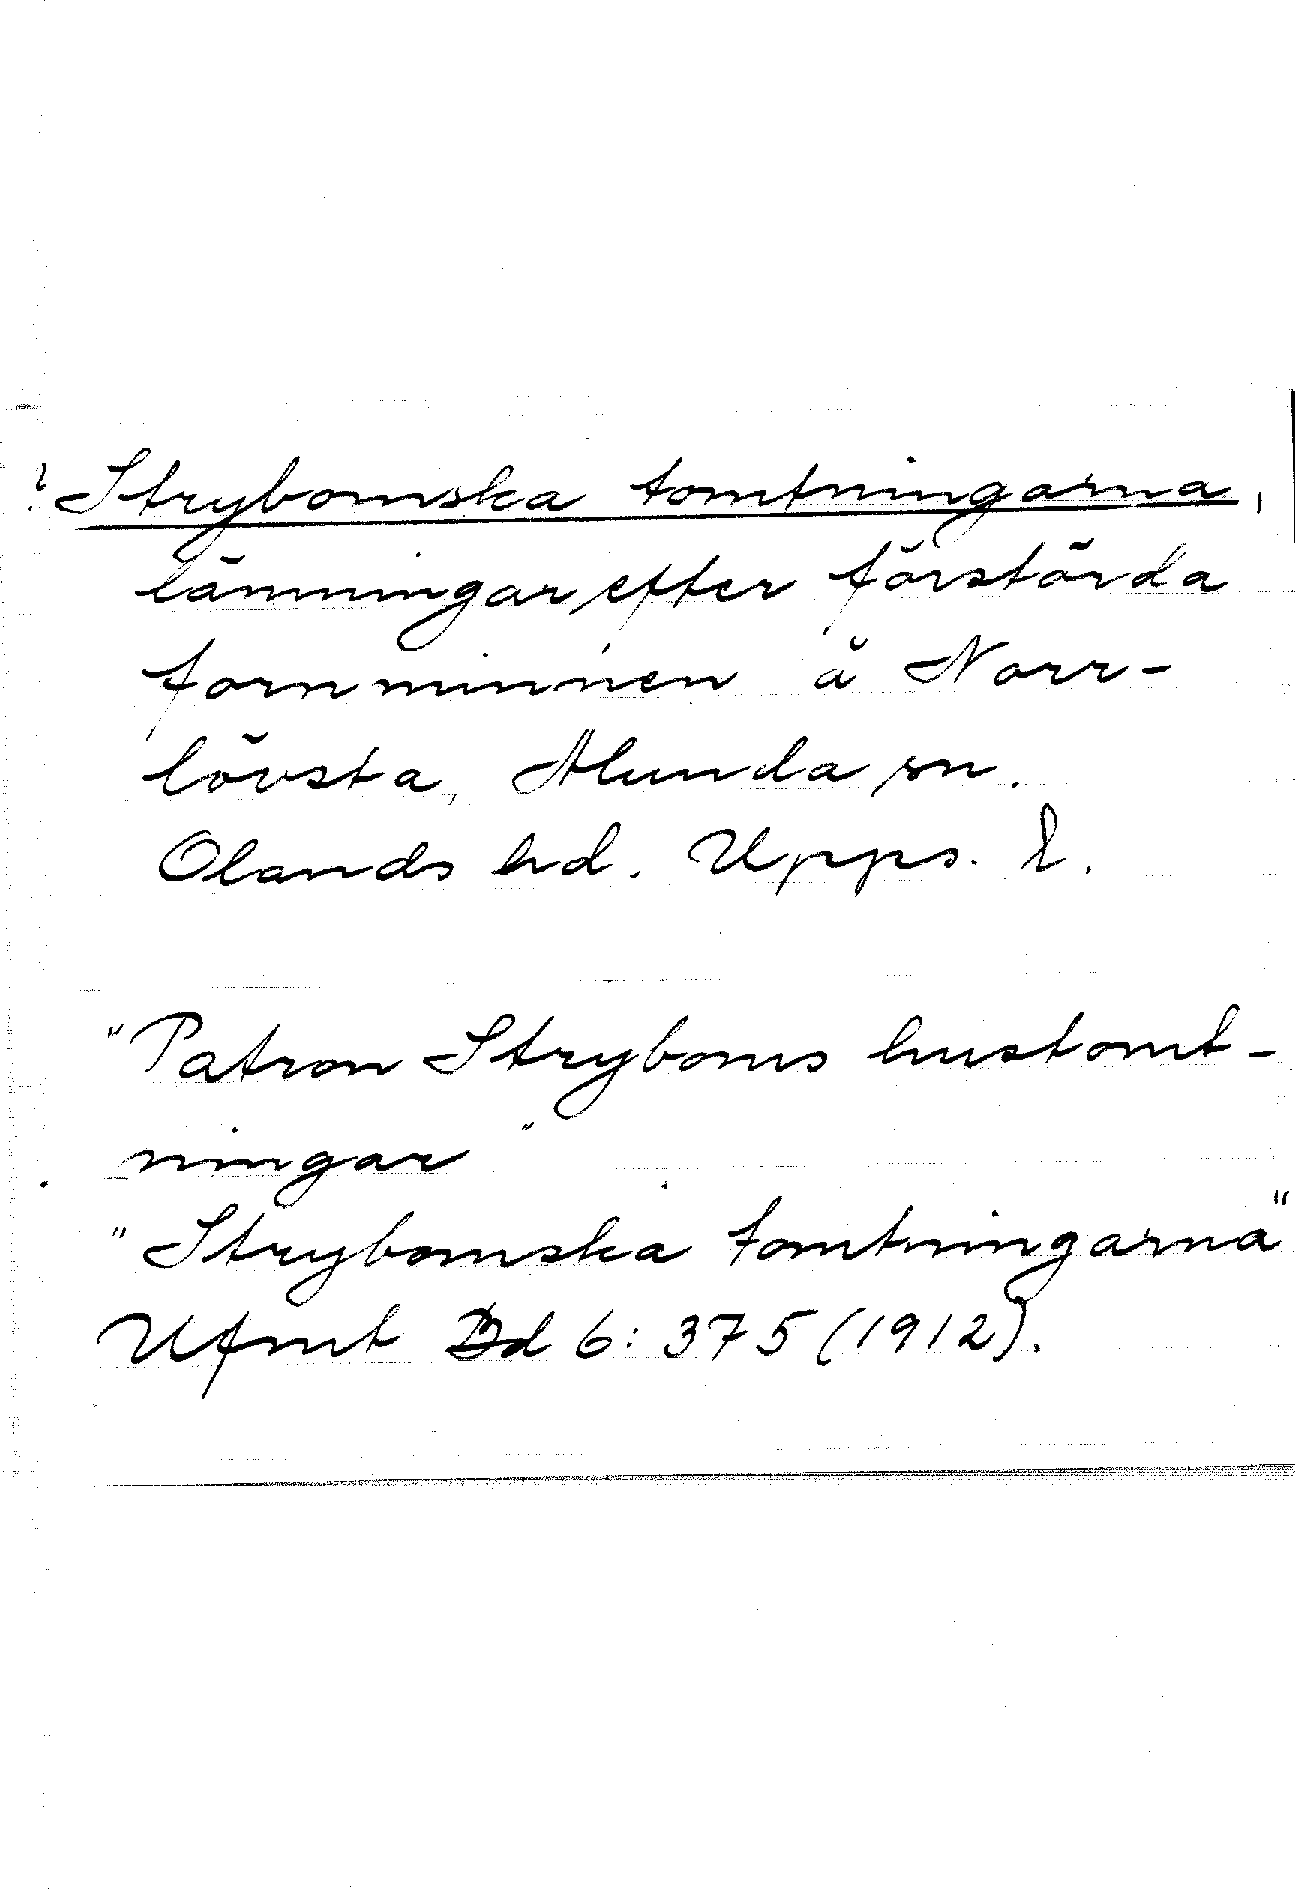 ? Strybomska tomtningarna,
lämningar efter förstörda
fornminnen å Norr-
lövsta, Alunda sn.
Olands hd. Upps. l.
"Patron Stryboms hustomt-
ningar"
"Strybomska tomtningarna"
Ufmt Bd 6: 375 (1912).